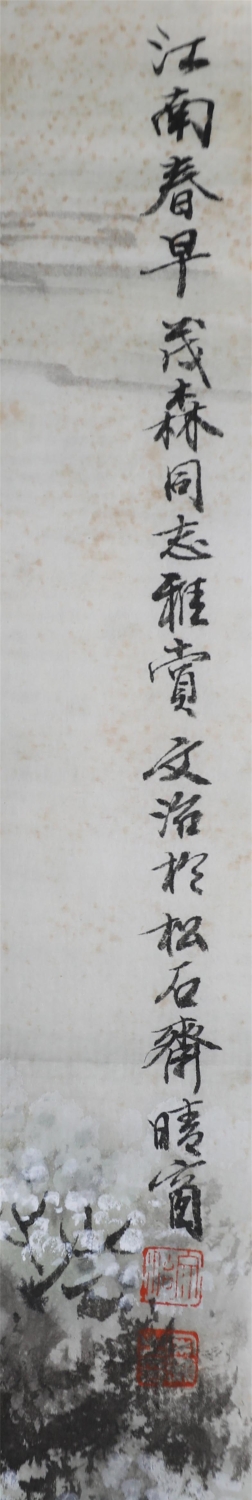 江南春早 茂森同志雅赏 文治於松石齋晴窗